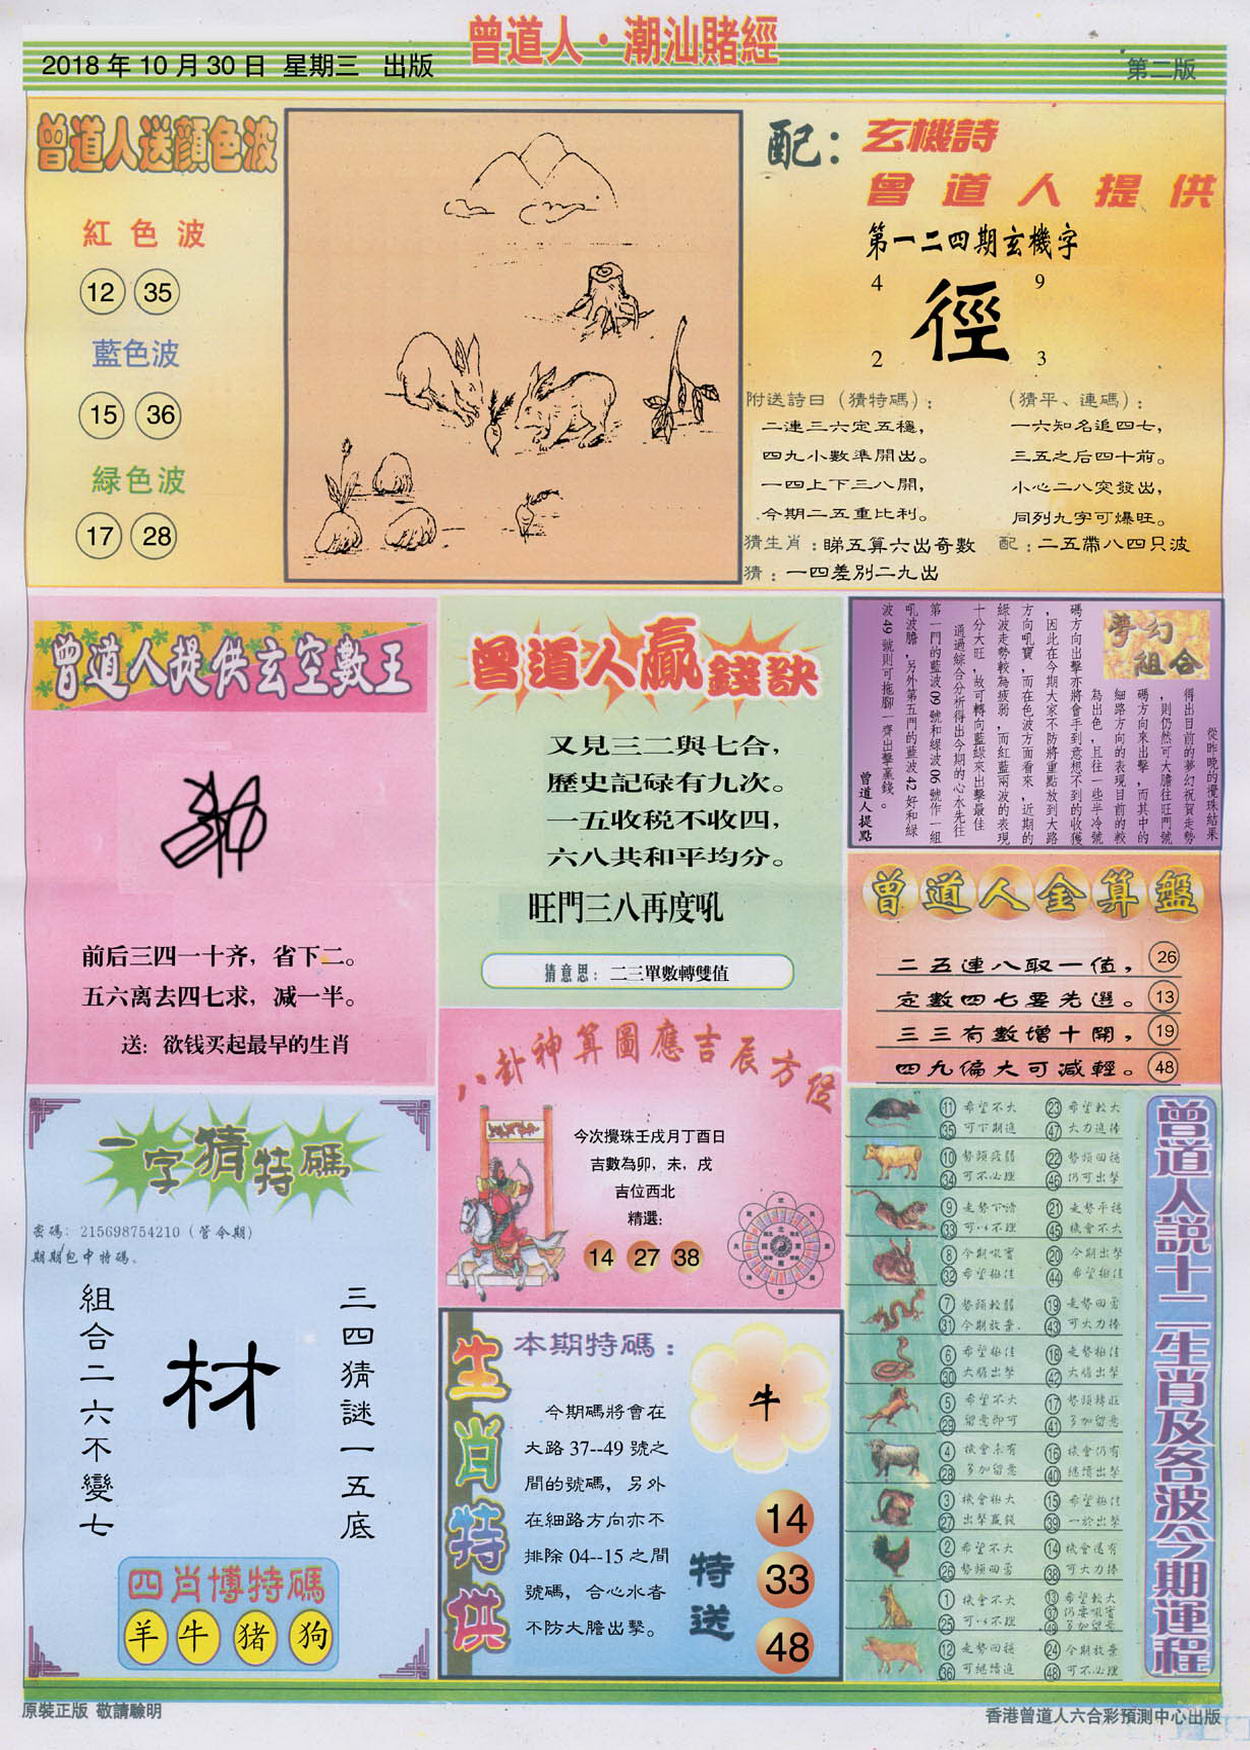 曾道人·潮汕賭經
2018年10月30日 星期三 出版
第二版
曾道人送顔色波
紅色波
12 35
藍色波
15 36
緑色波
17 28
配：玄機詩
曾道人提供
第一二四期玄機字
4 9
徑
2 3
附送詩曰（猜特碼）：
二連三六定五穩，
四九小數準開出。
一四上下三八開，
今期二五重比利。
（猜平、連碼）：
一六知名追四七，
三五之后四十前。
小心二八突發出，
同列九字可爆旺。
猜生肖：睇五算六出奇數
配：二五帶八四只波
猜：一四差別二九出
曾道人提供玄空數王
前后三四一十齐，省下二。
五六离去四七求，减一半。
送：欲钱买起最早的生肖
曾道人贏錢訣
又見三二與七合，
歷史記碌有九次。
一五收税不收四，
六八共和平均分。
旺門三八再度吼
猜意思：二三單數轉雙值
夢幻組合
從昨晚的攪珠結果
得出目前的夢幻祝賀走勢
，則仍然可大膽往旺門號
碼方向來出擊，而其中的
細路方向的表現目前的較
為出色，且往一些半冷號
碼方向出擊亦將會手到意想不到的收獲
，因此在今期大家不防將重點放到大路
方向吼寶，而在色波方面看來，近期的
綠波走勢較為疲弱，而紅藍兩波的表現
十分大旺，故可轉向藍綠來出擊最佳
通過綜合分析得出今期的心水先往
第一門的藍波09號和綠波06號作一組
吼波膽，另外第五門的藍波42好和綠
波49號則可拖腳一齊出擊贏錢。
曾道人提點
曾道人金算盤
二五連八取一值，26
定數四七要先選。13
三三有數增十開，19
四九偏大可減輕。48
八卦神算圖應吉辰方位
今次攪珠壬戌月丁酉日
吉數為卯，未，戌
吉位西北
精選：
14 27 38
一字猜特碼
密碼：215698754210（管令期）
期期包中特碼。
組合二六不變七
材
三四猜謎一五底
四肖博特碼
羊 牛 猪 狗
生肖特供
本期特碼：
牛
今期碼將會在
大路37--49號之
間的號碼，另外
在細路方向亦不
排除04--15之間
號碼，合心水者
不防大膽出擊。
特送
14
33
48
曾道人説十二生肖及各波今期運程
11 希望不大 23 希望較大
35 可下期進 47 大力進捧
10 勢頭疲弱 22 勢頭回穩
34 可不必理 46 仍可出擊
9 走勢不清 21 走勢平穩
33 可以不理 45 機會不大
8 今期吼實 20 今期出擊
32 希望極佳 44 希望極佳
7 勢頭較弱 19 走勢回勇
31 今期放棄 43 可大力捧
6 希望極佳 18 走勢極佳
30 大膽出擊 42 大膽出擊
5 希望不大 17 勢頭轉旺
29 留意即可 41 多加留意
4 機會未有 16 機會仍有
28 多加留意 40 繼續出擊
3 機會極大 15 希望極佳
27 出擊贏錢 39 一於出擊
2 希望不大 14 機會還有
26 勢頭回勇 38 可大力捧
1 機會不大 13 希望較大
25 可以不理 37 仍要吼實
49 多加留意
12 走勢回穩 24 今期放棄
36 可繼續進 48 可不必理
原裝正版 敬請驗明
香港曾道人六合彩預測中心出版